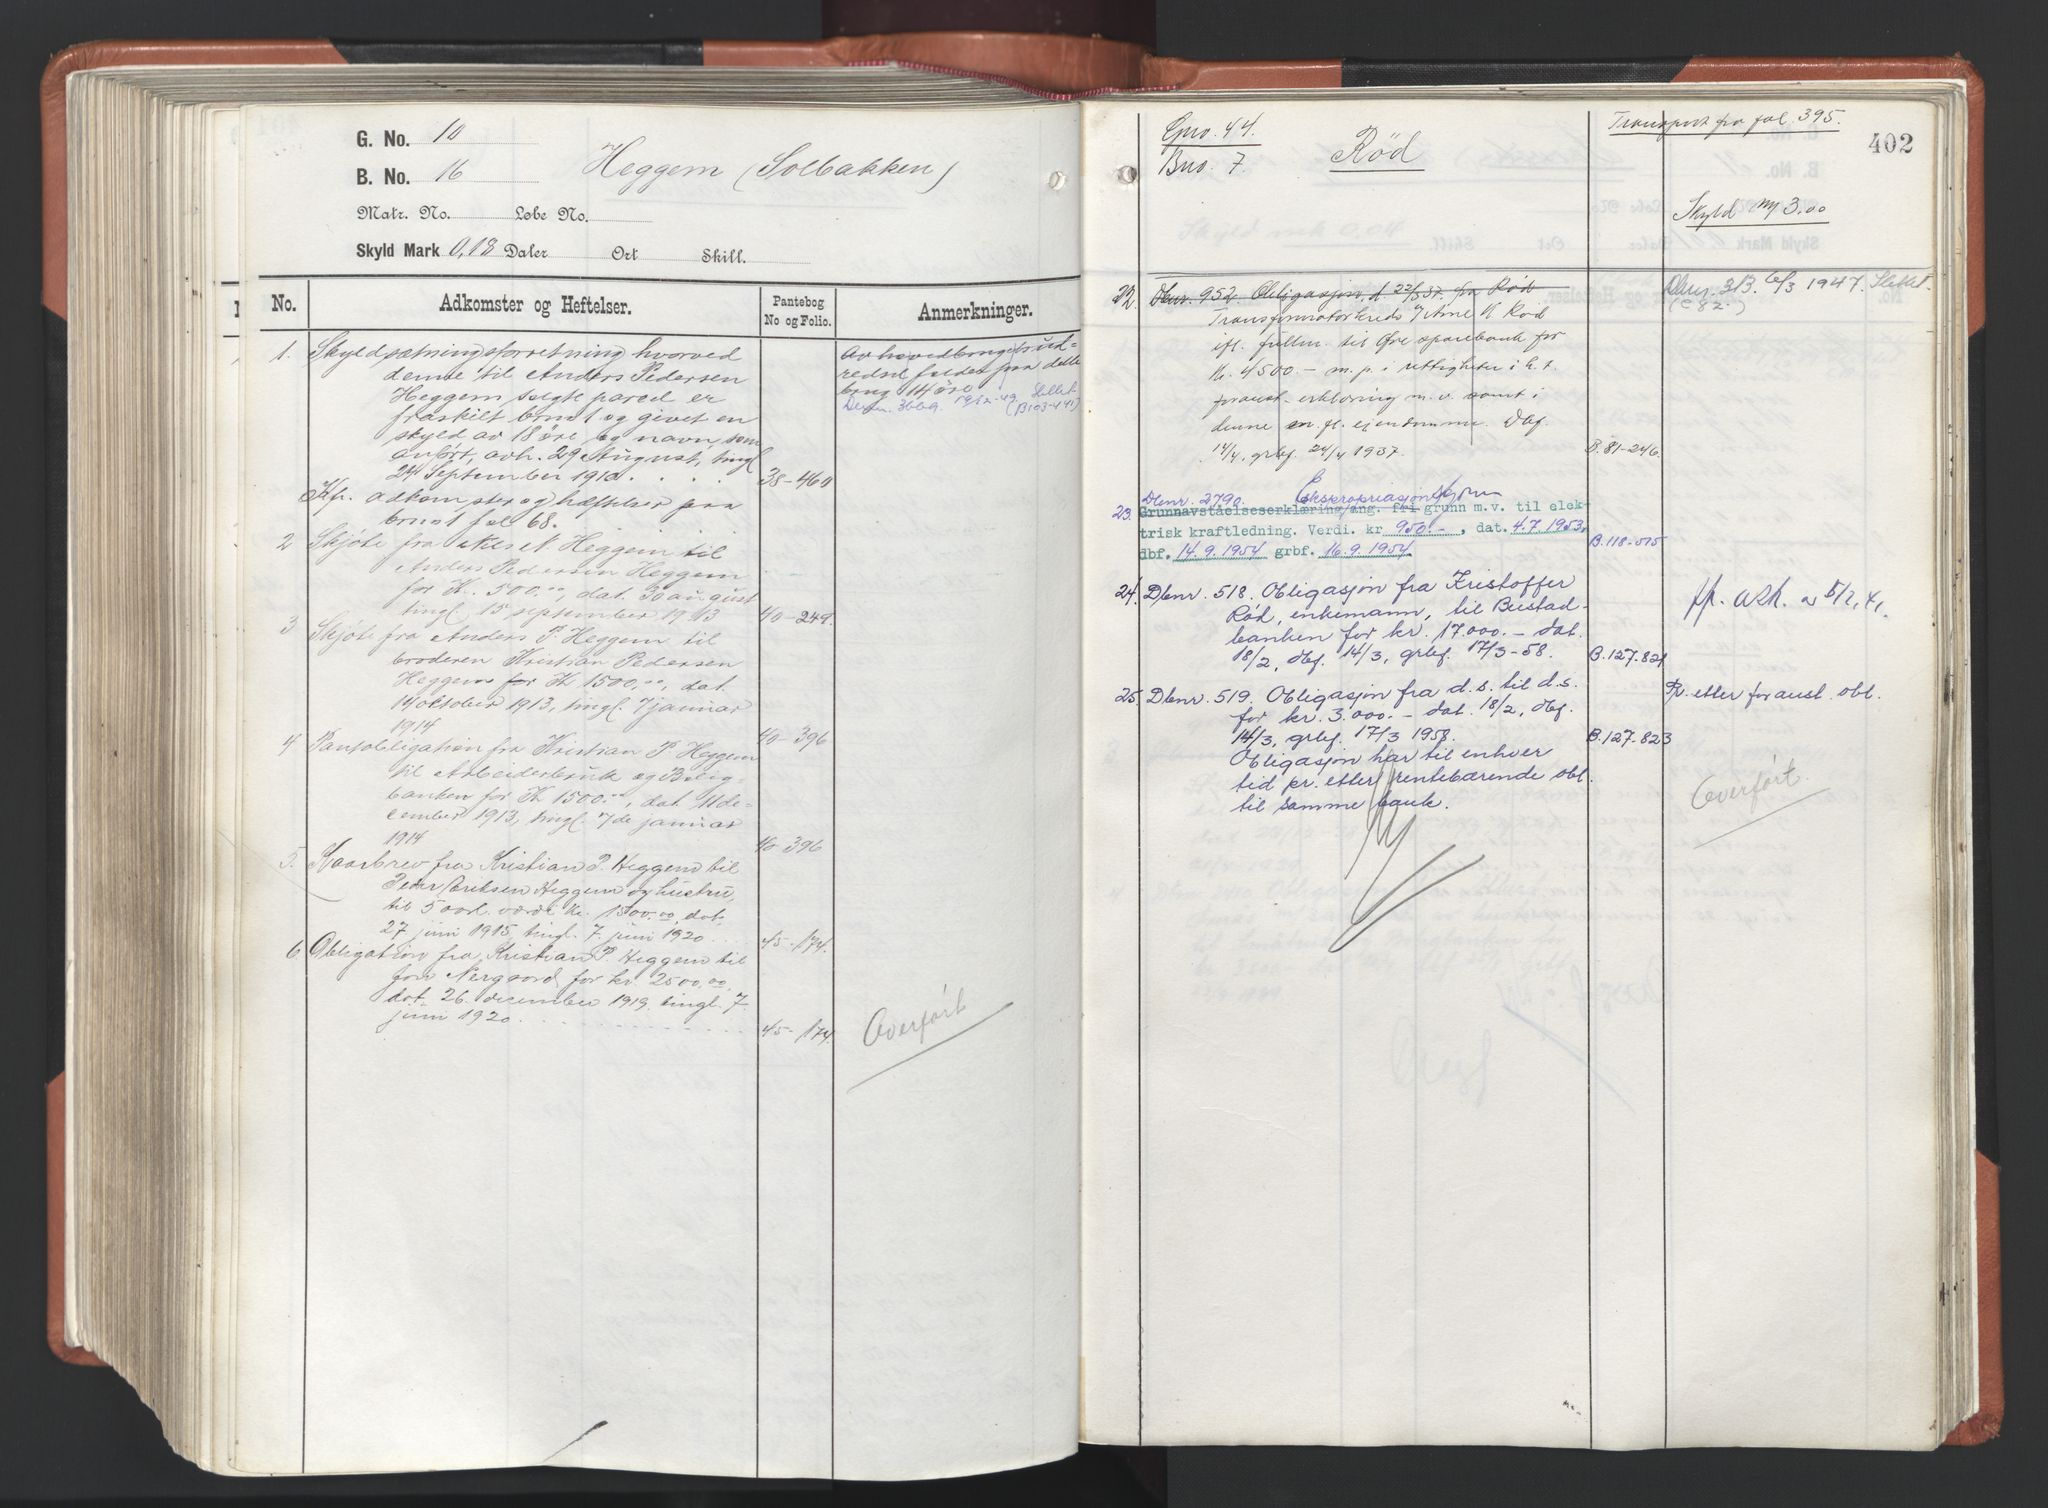 G. No. 10
B. No. 16
Heggem (Solbakken)
Matr. No. Løbe No.
Skyld Mark 0,18 Daler Ort Skill.
No. Adkomster og Heftelser. Pantebog No og Folio. Anmerkninger.
1. Skyldsætningsforretning hvorved
denne til Anders Pedersen
Heggem solgte parcel er
fraskilt brno 1 og givet en
skyld av 18 øre og navn, som
anført, avh. 29 August, tingl
24 September 1910. 38-460
Kfr. adkomster og hæftelser paa
brno 1 fol 68.
2 Skjøte fra Nils N. Heggem til
Anders Pedersen Heggem
for K. 500.00, dat. 30 august
tingl. 15 september 1913 40-249.
3 Skjøte fra Anders P. Heggem til
broderen Kristian Pedersen
Heggem for K 1500,00, dat.
14 oktober 1913, tingl. 7 januar
1914 40-396
4 Panteobligation fra Kristian P. Heggem
til Arbeiderbruk og Bolig-
banken for K 1500.00, dat. 11 de-
cember 1913, tingl. 7de januar
1914 40-396
5. Kaarbrev fra Kristian P. Heggem til
Peder Eriksen Heggem og hustru,
til 5 aarl. værdi kr. 1500.00, dat.
27 juni 1915, tingl. 7. juni 1920 45-174.
6 Obligation fra Kristian P. Heggem til
Nergaard for kr. 2500,00,
dat. 26. december 1919, tingl. 7
juni 1920 45-174.
Av hovedbrugets ud-
redsel falder paa dette
brug 14 øre
Dbnr. 3669. 19/12-49 Slettet
(B103-441)
Overført
Gno. 44.
Bno. 7.
Rød
Transport fra fol. 395.
402
Skyld my 3.00
22. Dbnr. 952. Obligasjon, d. 22/3 37. fra Rød
Transformatorkreds v/ Arne K. Rød
ifl. fullm. til Øre sparebank for
Kr. 4500.- m. p. i rettigheter i h. t.
foranst. erklæring m. v. samt i
denne m. fl. ejendomme. Dbf.
14/4, grbf. 24/4 1937. B. 81-246.
313. 6/3 1947 Slettet.
23. Dbnr. 2790. Ekspropriasjonsskjønn
Grunnavståelseserklæring ang. fri grunn m.v. til elek-
trisk kraftledning. Verdi. kr 950.-, dat. 4.7.1953,
dbf. 14.9.1954 grbf. 16.9.1954 B.118-515
24. Dbnr. 518. Obligasjon fra Kristoffer
Rød, enkemann, til Bustad-
banken for kr. 17.000.- dat.
18/2, dbf. 14/3, grbf. 17/3-58. B.127-821
25. Dbnr. 519. Obligasjon fra d.s. til d.s.
for kr. 3.000.- dat. 18/2, dbf.
14/3, grbf. 17/3 1958. B.127-823
Obligasjon har til enhver
tid pr. etter rentebærende obl.
til samme bank.
Pr. etter foranst. obl.
Overført.